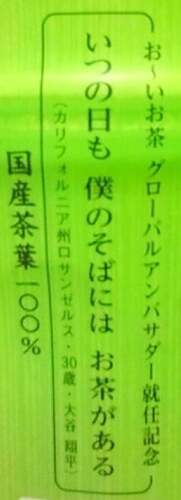 お〜いお茶 グローバルアンバサダー就任記念
いつの日も 僕のそばには お茶がある
(カリフォルニア州ロサンゼルス・30歳・大谷 翔平)
国産茶葉一〇〇%